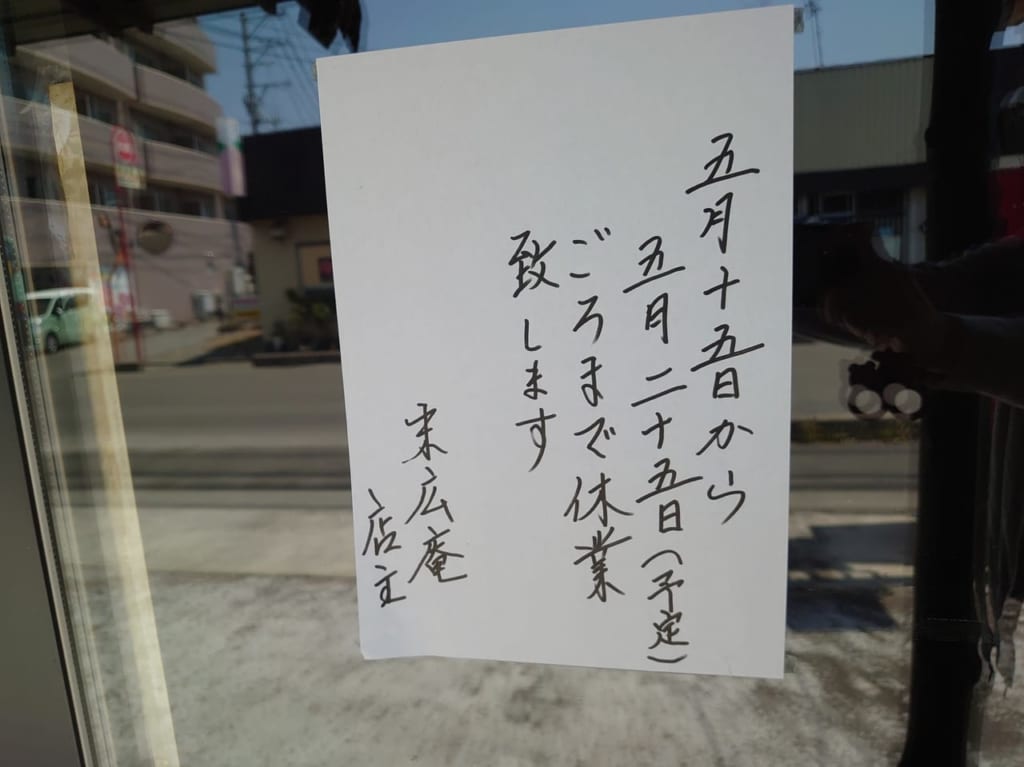 五月十五日から
五月二十五日(予定)
ごろまで休業
致します
末広庵
店主